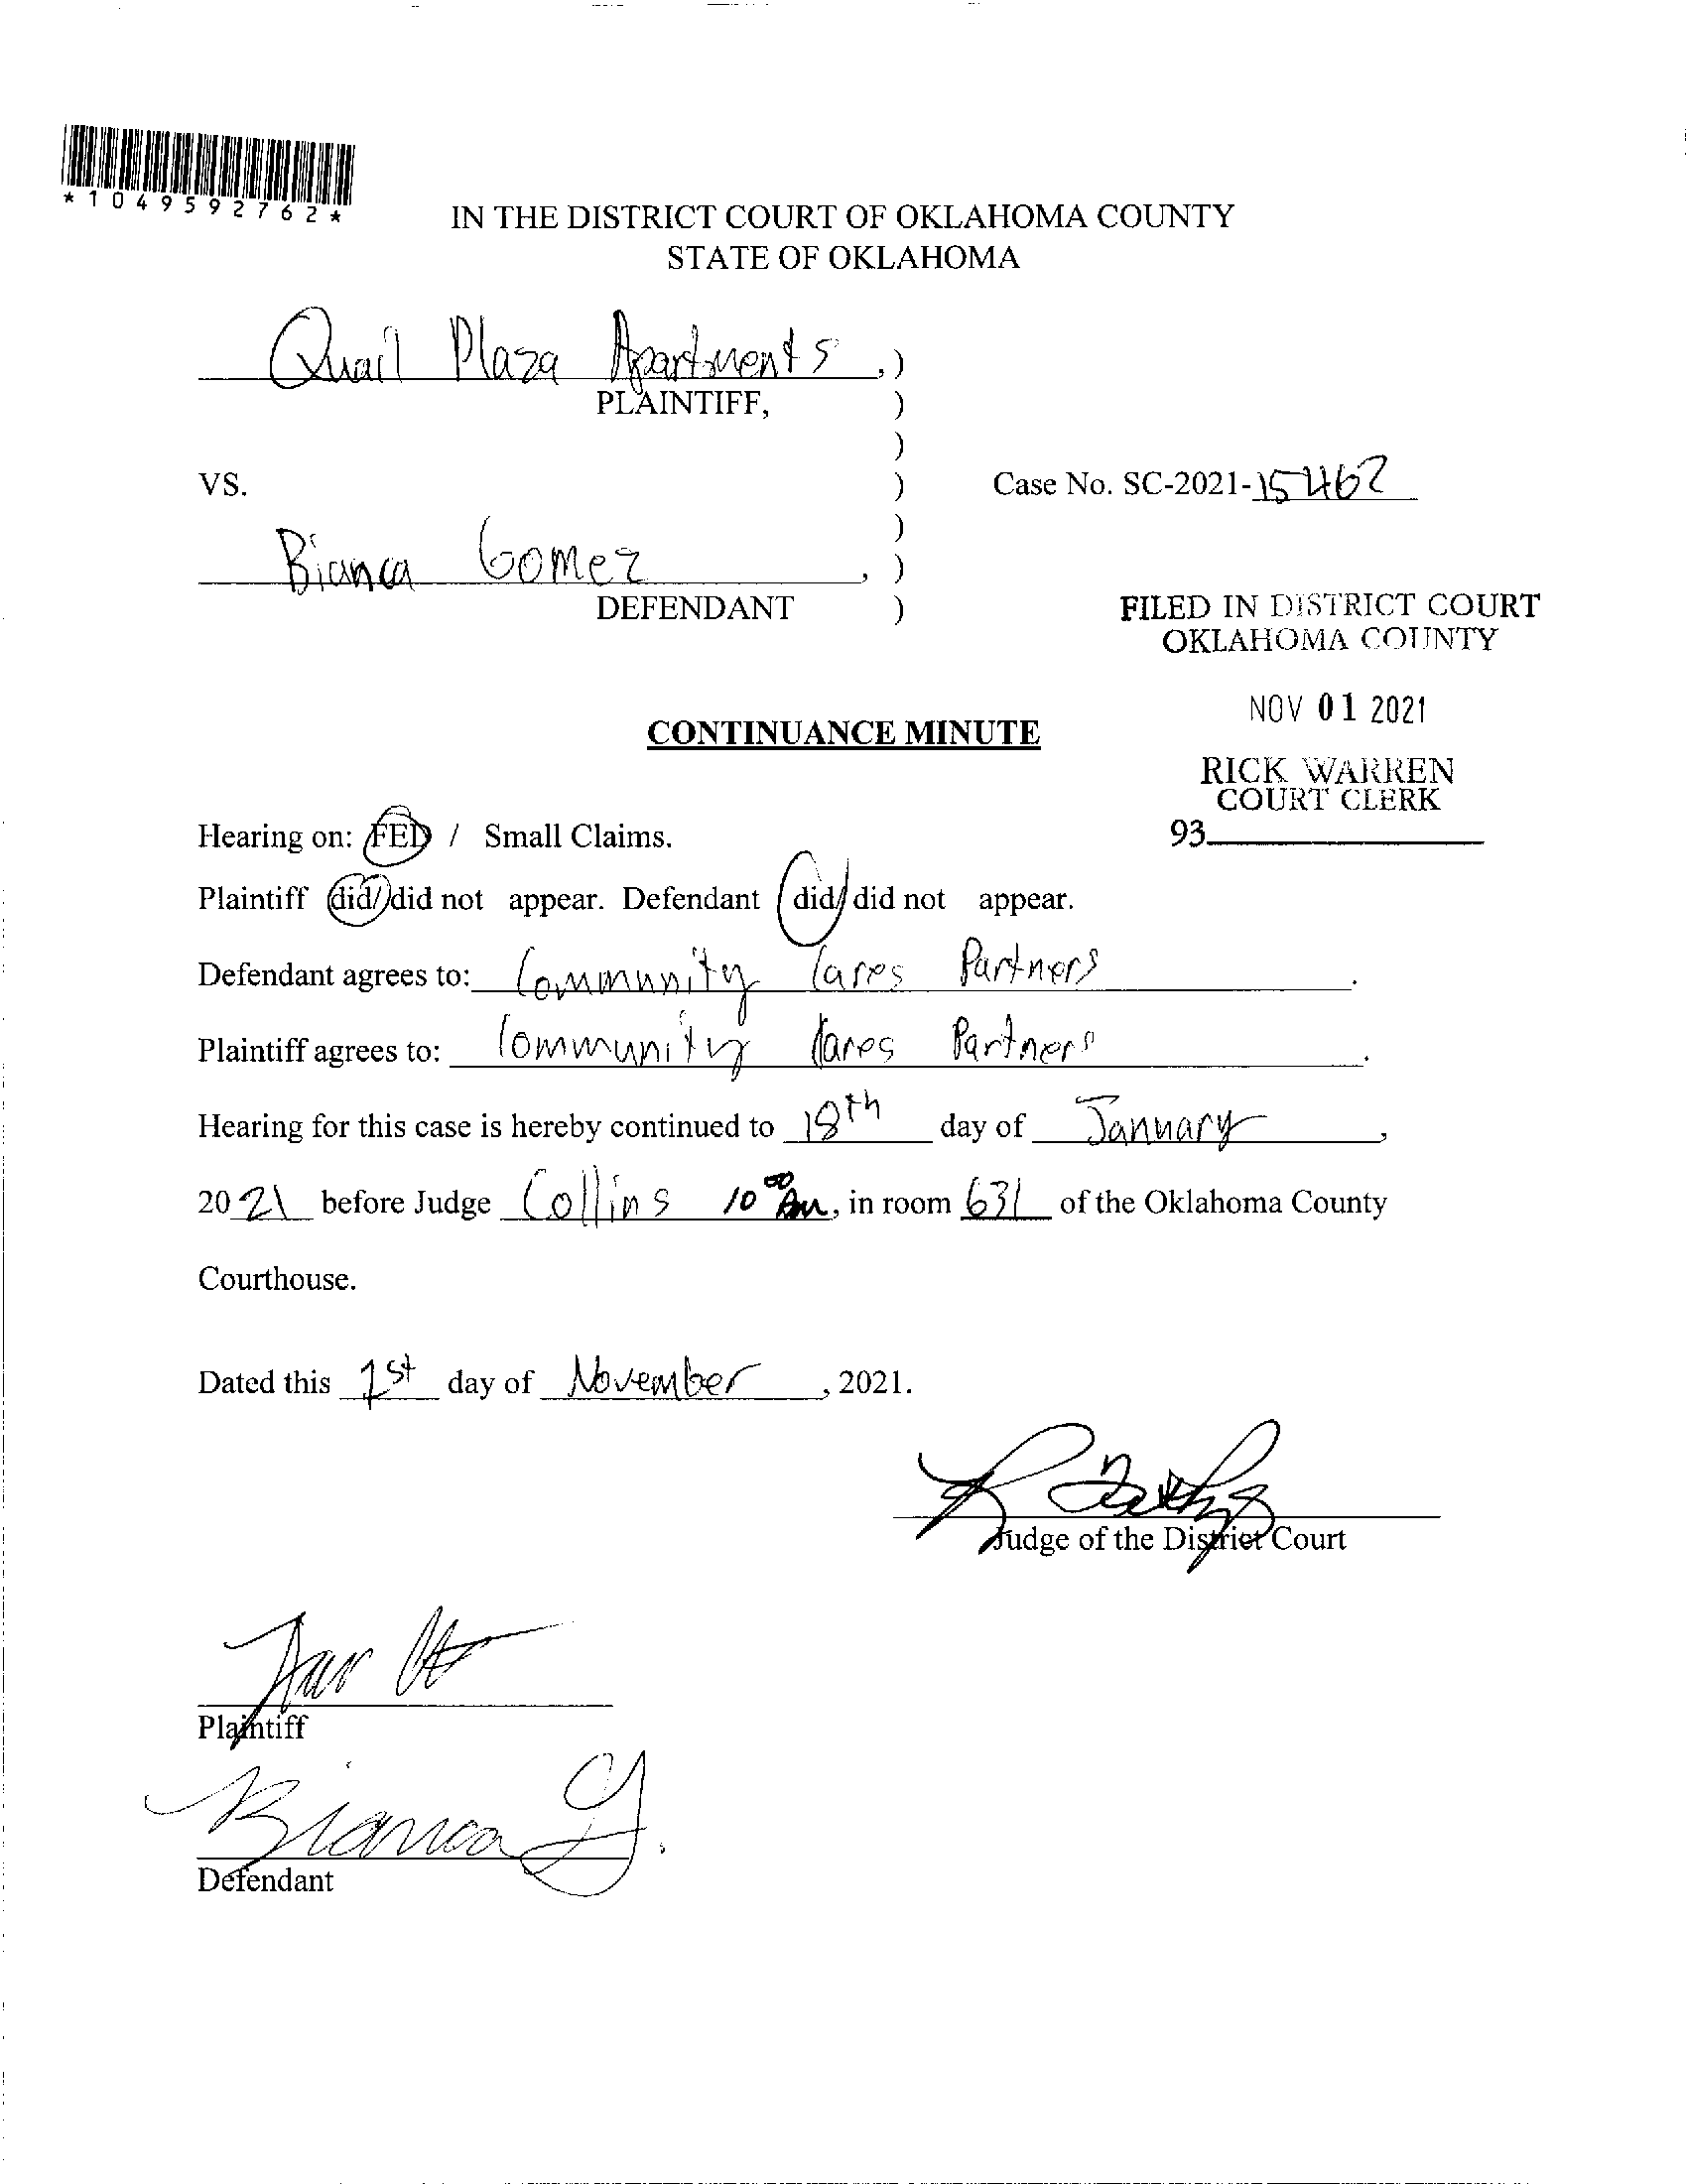 *1049592762*
IN THE DISTRICT COURT OF OKLAHOMA COUNTY
STATE OF OKLAHOMA
Quail Plaza Apartments,)
PLAINTIFF, )
)
VS. ) Case No. SC-2021-15462
)
Bianca Gomez, )
DEFENDANT )
FILED IN DISTRICT COURT
OKLAHOMA COUNTY
NOV 01 2021
CONTINUANCE MINUTE
RICK WARREN
COURT CLERK
93
Hearing on: FED / Small Claims.
Plaintiff did/did not appear. Defendant did/did not appear.
Defendant agrees to: Community Cares Partners.
Plaintiff agrees to: Community Cares Partners.
Hearing for this case is hereby continued to 18th day of January,
2021 before Judge Collins 10 00 Am, in room 631 of the Oklahoma County
Courthouse.
Dated this 1st day of November, 2021.
Judge of the District Court
Plaintiff
Bianca G.
Defendant